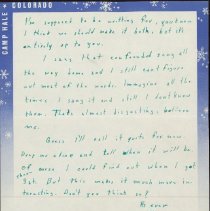 CAMP HALE * COLORADO
I'm supposed to be writing you, you know
I think we should make it both, but it's
entirely up to you.
I sang that confounded song all
the way home and I still can't figure
out most of the words. Imagine all the
times I sang it and still I don't know
them. That's almost disgusting, believe
me.
Guess I'll call it quits for now.
Drop me a line and tell when it will be
of mine I could find out when I got
But this makes it much more in-
teresting. Don't you think so?
As ever